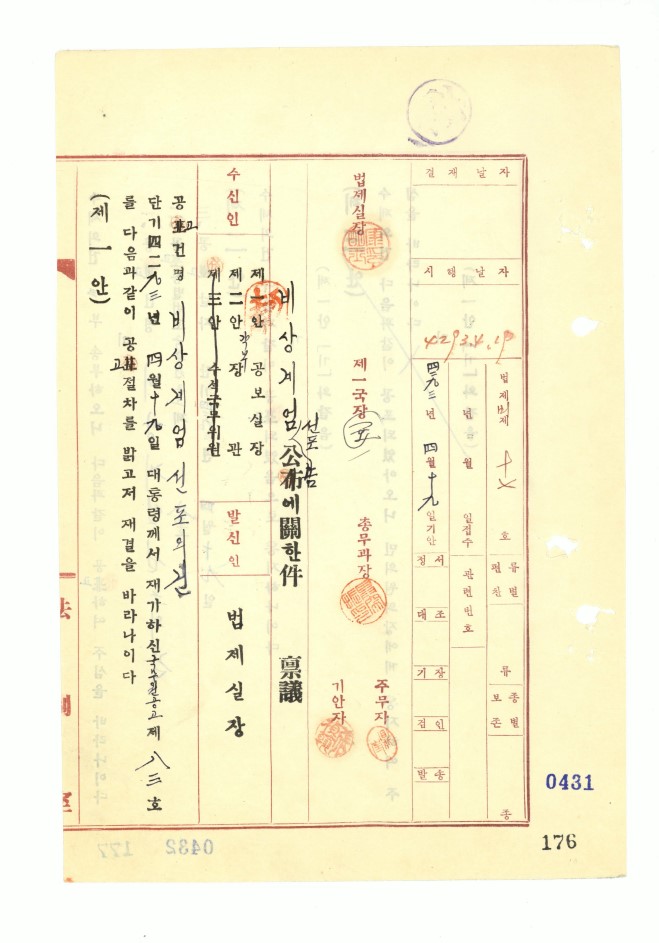 결재날자
시행날자
4293.4.19
법제 제 十 호
년 월 일접수
四二九三 년 四 월 十九 일기안
편찬 류별
류
보존 종별
종
관련번호
정서
대조
기장
검인
발송
법제실장
제一국장
총무과장
주무자
기안자
비상계엄 선포 公布에關한件 稟議
수신인
제一안 공보실장
제二안 각부 장관
제三안 수석국무위원
발신인
법제실장
공표고건명 비상계엄 선포의 건
단기四二九三년 四월十九일 대통령께서 재가하신 국무원공고 제 八三 호
를 다음과같이 공표고절차를 밝고저 재결을 바라나이다
(제一안)
法制室
0431
176
0432 177